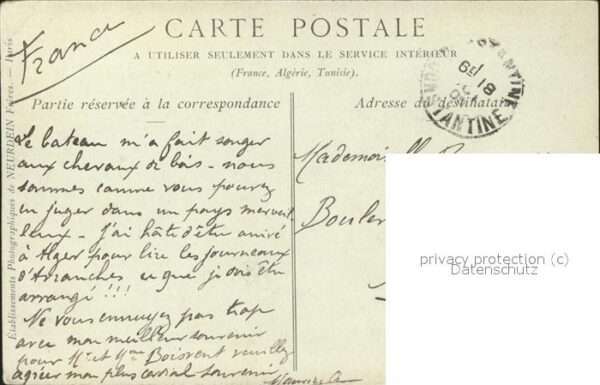 CARTE POSTALE
A UTILISER SEULEMENT DANS LE SERVICE INTÉRIEUR
(France, Algérie, Tunisie).
France
Partie réservée à la correspondance
Adresse du destinataire
CONSTANTINE
Établissements Photographiques de NEURDEIN Frères. — Paris
Le bateau m'a fait songer
aux chevaux de bois - nous
sommes comme vous pouvez
en juger dans un pays merveil
leux - j'ai hâte d'être arrivé
à Alger pour lire les journeaux
d'Avranches ce que je dois être
arrangé !!!
Ne vous ennuyez pas trop
avec mon meilleur souvenir
pour Mr et Mme Boissent veuillez
agréer mon plus cordial souvenir
Mademoiselle
Boulev
privacy protection (c)
Datenschutz